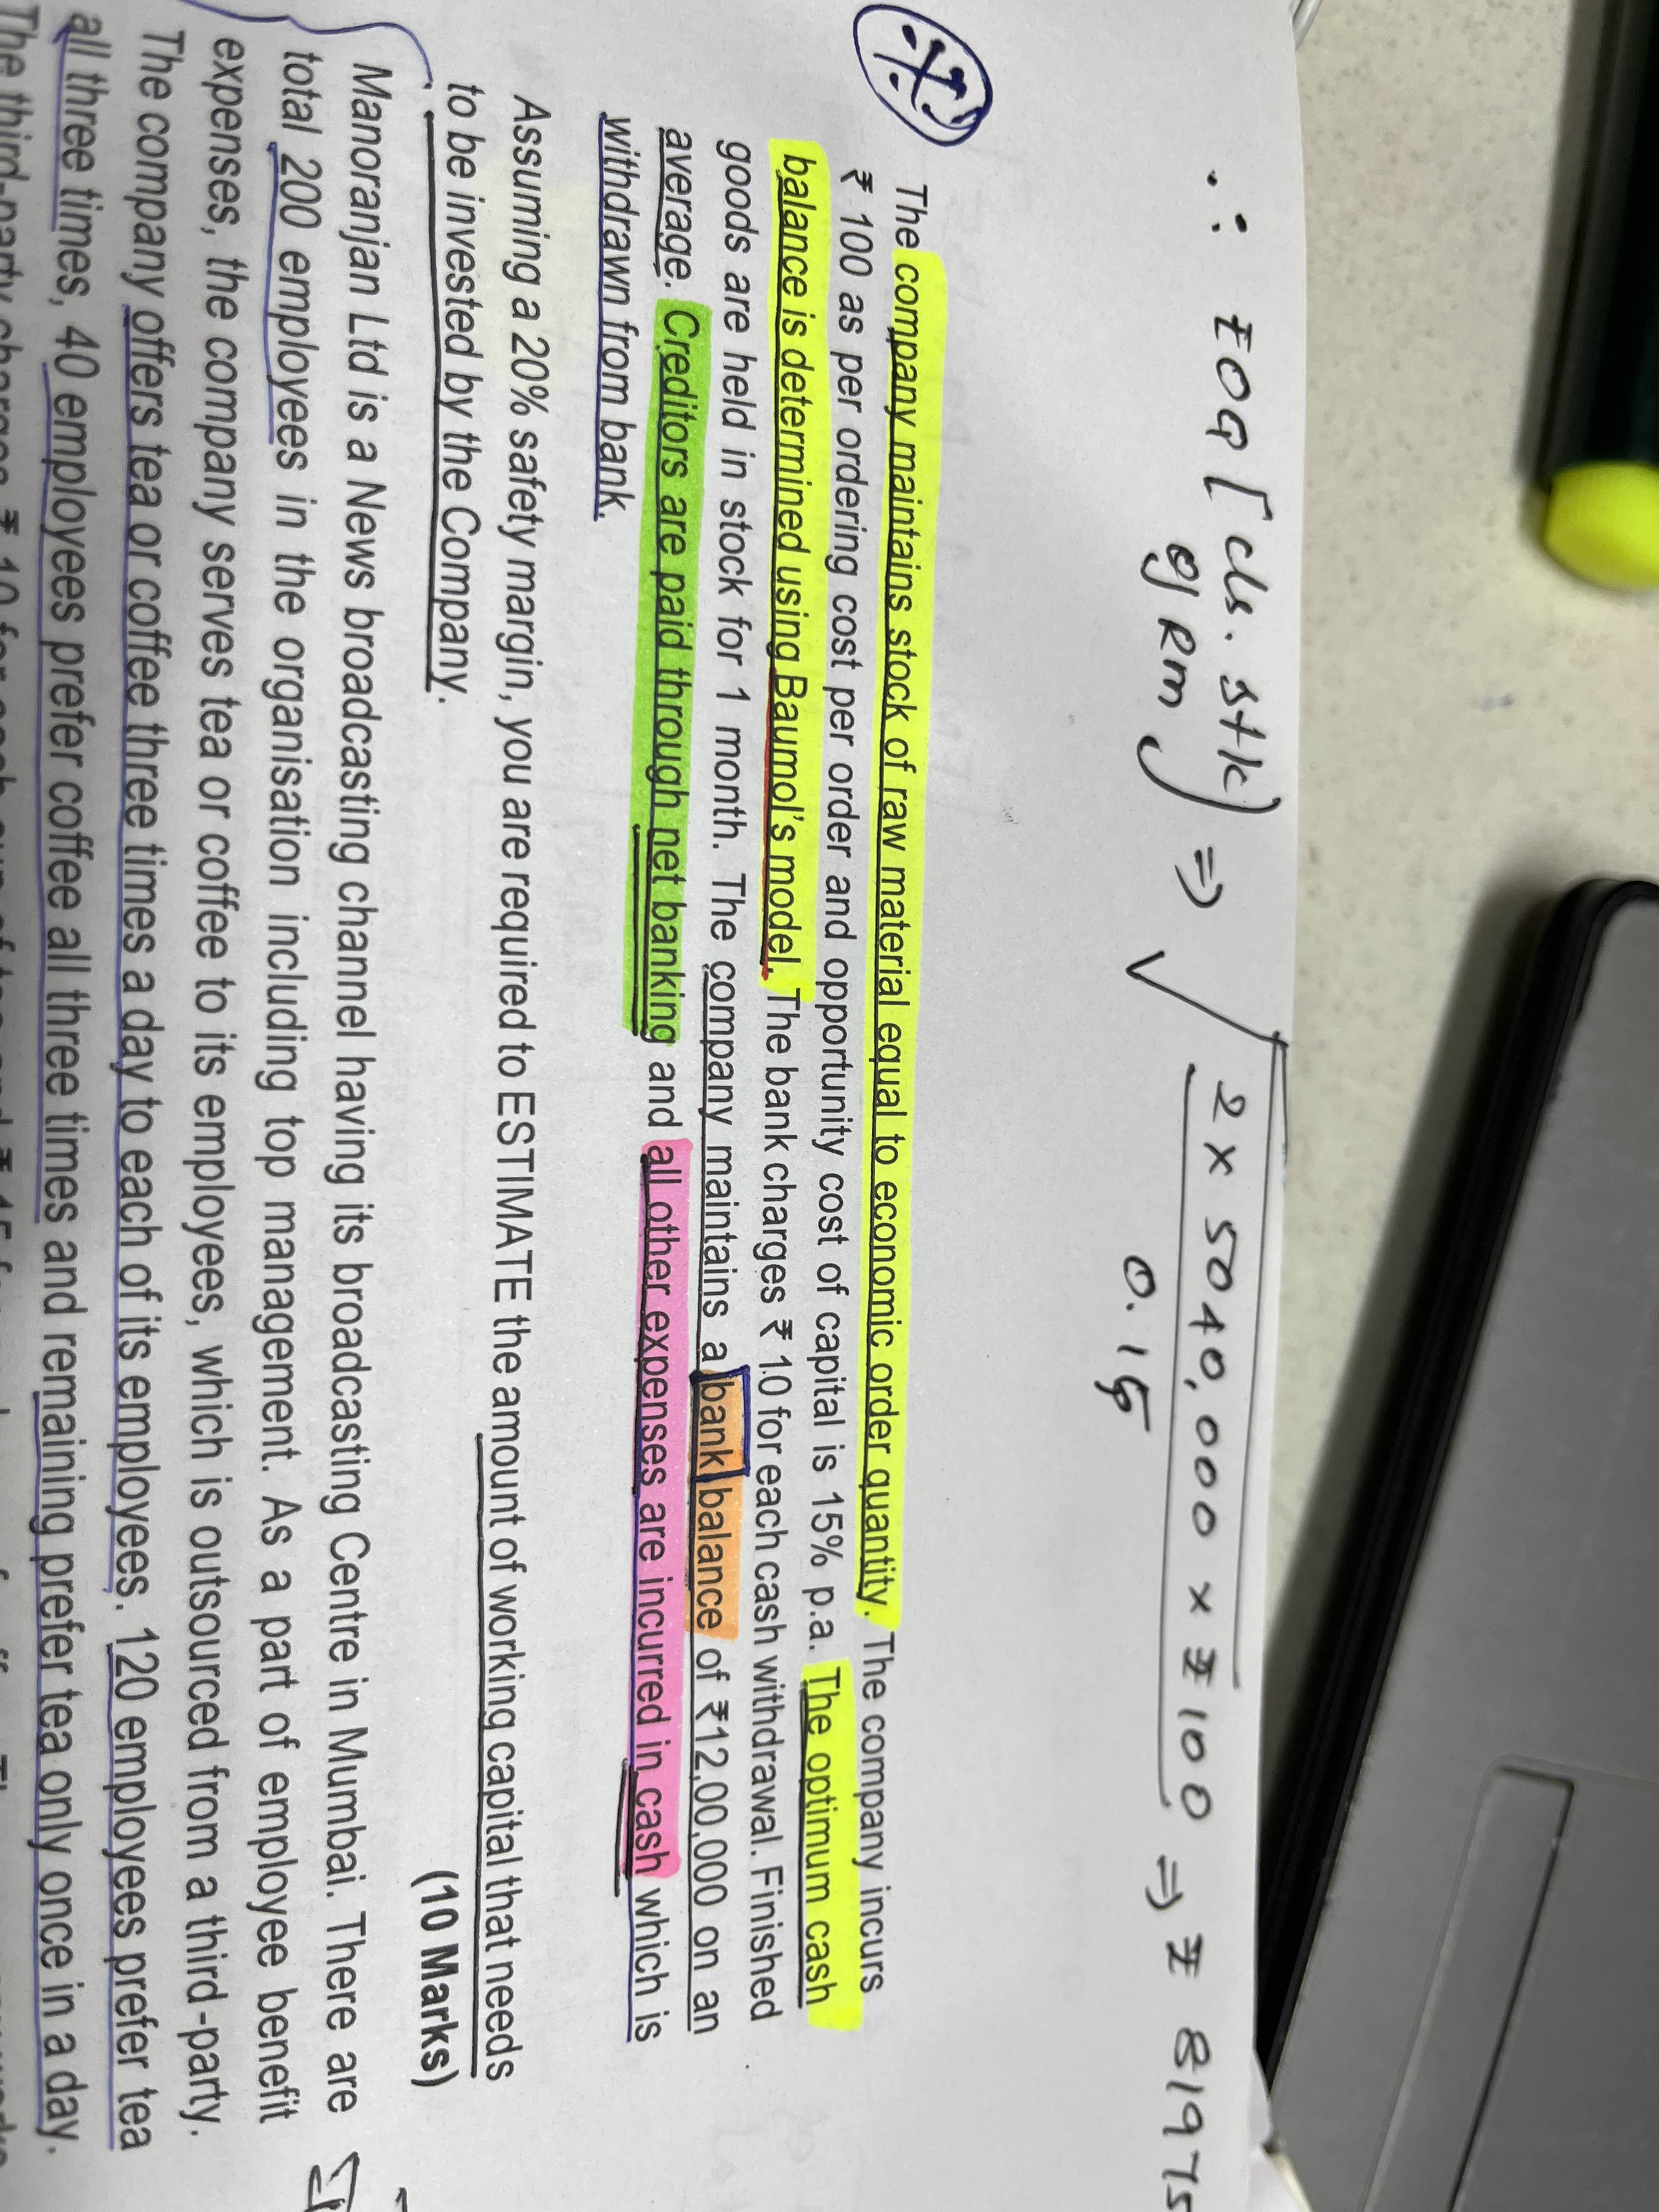 ∴ EOQ [cls. stk of RM] ⇒ √ 2 x 5040,000 x ₹100 ⇒ ₹ 81975
0.15
The company maintains stock of raw material equal to economic order quantity. The company incurs
₹ 100 as per ordering cost per order and opportunity cost of capital is 15% p.a. The optimum cash
balance is determined using Baumol's model. The bank charges ₹ 10 for each cash withdrawal. Finished
goods are held in stock for 1 month. The company maintains a bank balance of ₹12,00,000 on an
average. Creditors are paid through net banking and all other expenses are incurred in cash which is
withdrawn from bank.
Assuming a 20% safety margin, you are required to ESTIMATE the amount of working capital that needs
to be invested by the Company.
(10 Marks)
Manoranjan Ltd is a News broadcasting channel having its broadcasting Centre in Mumbai. There are
total 200 employees in the organisation including top management. As a part of employee benefit
expenses, the company serves tea or coffee to its employees, which is outsourced from a third-party.
The company offers tea or coffee three times a day to each of its employees. 120 employees prefer tea
all three times, 40 employees prefer coffee all three times and remaining prefer tea only once in a day.
The third-party charges ₹ 10 for each cup of